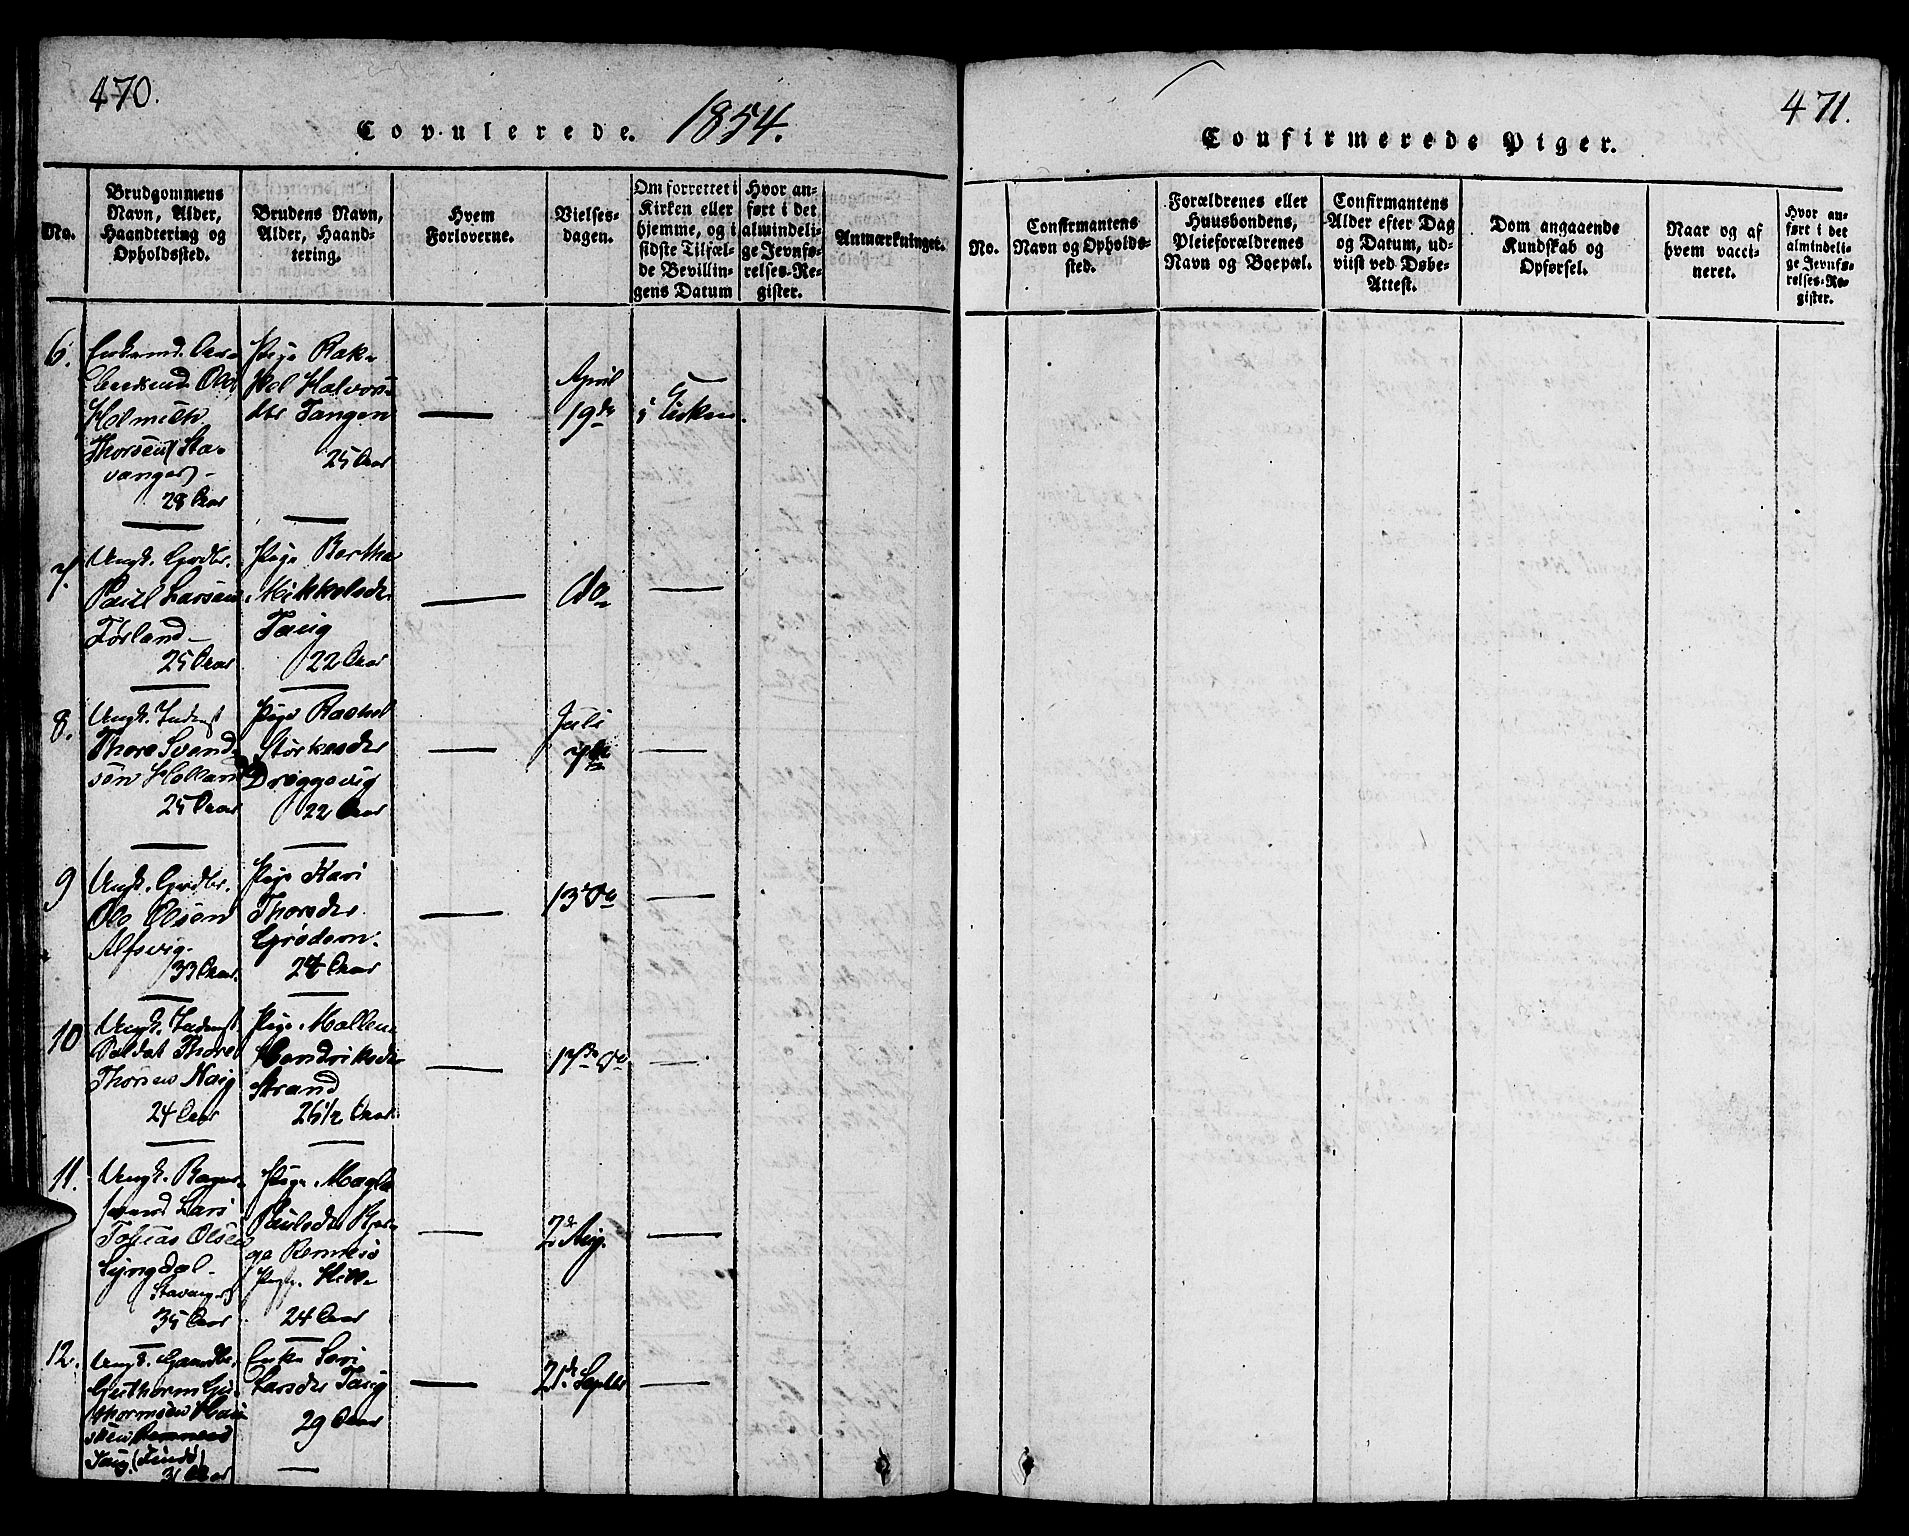 470.
Copulerede. 1854.
No.
Brudgommens Navn, Alder, Haandtering og Opholdssted.
Brudens Navn, Alder, Haandtering.
Hvem Forloverne.
Vielsesdagen.
Om forrettet i Kirken eller hjemme, og i sidste Tilfælde Bevillingens Datum
Hvor anført i det almindelige Jevnførelses-Register.
Anmærkninger.
6.
Holmich
Thorsen (Stavanger) -
28 Aar
Pige Rakhel Halvorsdtr Tangen
25 Aar
April
19de
i Kirken
7.
Ungk. Grdbr.
Paul Larsen
Førland
25 Aar
Pige Bertha
Mikkelsdtr
Taug
22 Aar
do
8.
Ungk. Inderst
Thore Svendsen Helland
25 Aar
Pige Rachel
Størkersdtr
Dreggevig
22 Aar
Juli
7de
9
Ungk. Grdbr.
Ole Olsen
Alfsvig.
33 Aar.
Pige Kari
Thorsdtr
Grødem.
24 Aar
13 do
10
Ungk. Inderst
Soldat Thore
Thorsen Haig
24 Aar
Pige Mallene
Hendriksdtr
Strand
26 1/2 Aar
17de do
11.
Ungk. Bagersvend Lars
Tobias Olsen
Lyngdal -
Stavanger
35 Aar
Pige Magla
Paulsdtr
Rennesø
24 Aar
2de Aug.
12.
Ungk. Gaardbr.
Guthorm Guthormsen
Rennesø
Taug (Findø)
31 Aar
Enke Siri
Larsdtr Taug
29 Aar
21de Septbr
471.
Confirmerede Piger.
No.
Confirmantens Navn og Opholdssted.
Forældrenes eller Huusbondens, Pleieforældrenes Navn og Boepæl.
Confirmantens Alder efter Dag og Datum, udviist ved Døbe-Attest.
Dom angaaende Kundskab og Opførsel.
Naar og af hvem vaccineret.
Hvor anført i det almindelige Jevnførelses-Register.